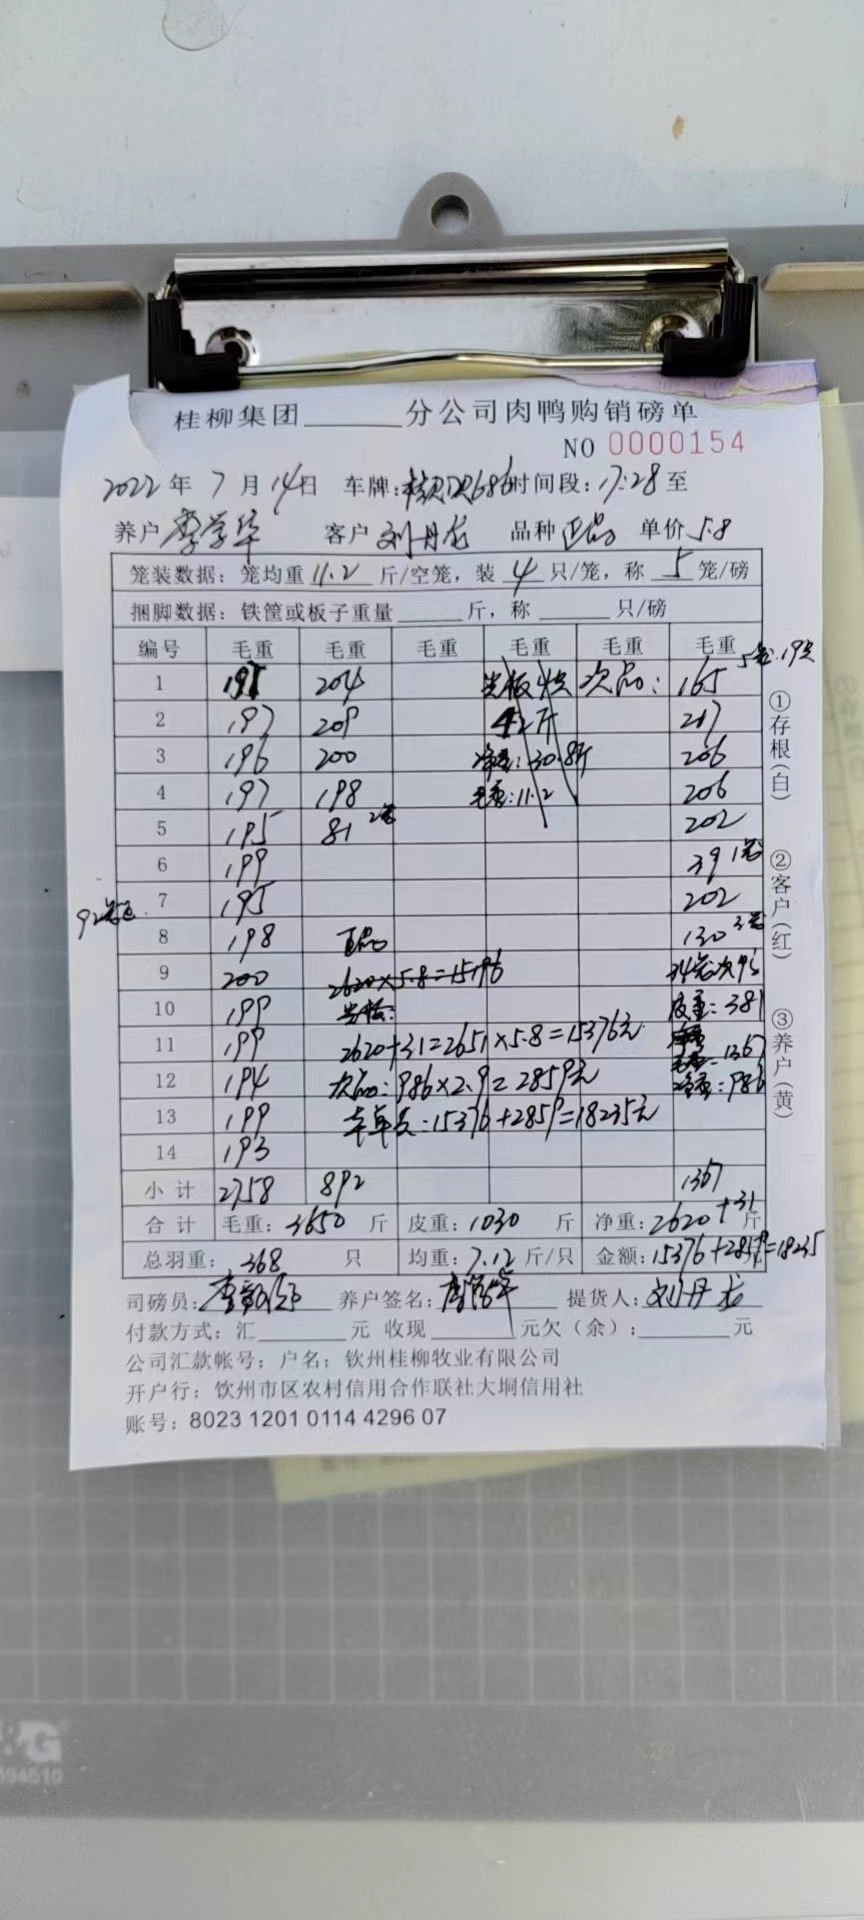 桂柳集团______分公司肉鸭购销磅单
NO 0000154
2022年7月14日 车牌: 686 时间段: 17:28至
养户 李学华 客户 刘丹龙 品种 正品 单价 5.8
笼装数据: 笼均重 11.2 斤/空笼, 装 4 只/笼, 称 5 笼/磅
捆脚数据: 铁筐或板子重量______斤, 称______只/磅
编号 毛重 毛重 毛重 毛重 毛重 毛重
5笼.19只
1 195 204 4只 次品: 165
2 197 209 42斤 217
3 196 200 净重: 30.8斤 206
4 197 198 毛重: 11.2 206
5 195 81 2笼 202
6 199 39 1笼
7 195 202
92笼正.
8 198 正品 130 3笼
9 200 2620×5.8=15196 34笼次95
10 199 皮重: 381
11 199 2620+31=2651×5.8=15376元 毛重: 1367
12 194 次品: 986×2.9=2859元 净重: 986
13 199 本车总: 15376+2859=18235元
14 193
小计 2758 892 1367
合计 毛重: 3650 斤 皮重: 1030 斤 净重: 2620+31 斤
总羽重: 368 只 均重: 7.12 斤/只 金额: 15376+2859=18235
司磅员: 养户签名: 李学华 提货人: 刘丹龙
付款方式: 汇______元 收现______元欠(余): ______元
公司汇款帐号: 户名: 钦州桂柳牧业有限公司
开户行: 饮州市区农村信用合作联社大垌信用社
账号: 8023 1201 0114 4296 07
①存根(白)
②客户(红)
③养户(黄)
&G
94510